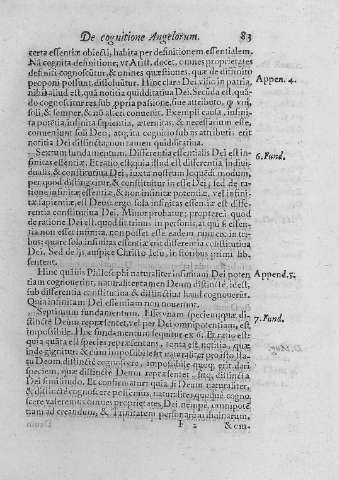 De cognitione Angelorum. 83
certa essentiæ obiecti, habita per definitionem essentialem.
Nā cognita definitione, vt Arist. docet, omnes proprietates
definiti cognoscūtur, & omnes quæstiones, quæ de definito
proponi possunt, dissoluūtur. Hinc clara Dei visio in patria, Appen. 4.
nihil aliud est, quā notitia quidditatiua Dei. Secūda est, quā-
do cognoscitur res sub propria passione, siue attributo, quod vni,
soli, & semper, & nō alteri conuenit. Exempli causa, infini-
ta potētia, infinita sapientia, æternitas, & necessarium esse,
conueniunt soli Deo, atque ita cognitio sub his attributis erit
notitia Dei distincta, non tamen quidditatiua.
Sextum fundamentum. Differentia essentialis Dei est in- 6. Fund.
finitas essentiæ. Et ratio est, quia illud est differentia
& constitutiua Dei, iuxta nostrum loquēdi modum,
per quod distinguitur, & constituitur in esse Dei, sed de ra-
tione infinitæ essentiæ, & non infinitæ potentiæ, vel infini-
tæ sapientiæ, est Deus: ergo sola infinitas essentiæ est diffe-
rentia constitutiua Dei. Minor probatur; propterea quod
de ratione Dei est, quod sit trinus in personis, at qui si essen-
tia non esset infinita, non posset esse eadem numero in tri-
bus: quare sola infinitas essentiæ erit differentia essentialis
Dei. Sed de his, auspice Christo Iesu, in
sentent.
Hinc quāuis Philosophi naturaliter infinitam Dei poten- Append. 5.
tiam cognouerint, naturaliter tamen Deum distinctè, id est,
sub differentia constitutiua & distinctiua haud cognouerūt.
Quia infinitam Dei essentiam non nouerunt.
Septimum fundamentum. Hic vnam speciem quæ di- 7. Fund.
stinctè Deum repræsentet, vel per Dei omnipotentiam, est
impossibile. Hoc fundamentum sequitur ex 6. Et ratio est:
quia quāta est species repræsentans, tanta est notitia, quæ
inde gignitur, & cum impossibile sit naturaliter pro isto sta-
tu Deum distinctè cognoscere, impossibile quoque erit dari
speciem, quæ distinctè Deum repræsentet, siue distincta
Dei similitudo. Et confirmatur: quia si Deum naturaliter,
& distinctè cognoscere possemus, naturaliter quoque cogno-
scere valeremus omnes proprietates Dei, nempe, omnipotē-
tiam ad creandum, & Trinitatem personarum
F 2 & cu-